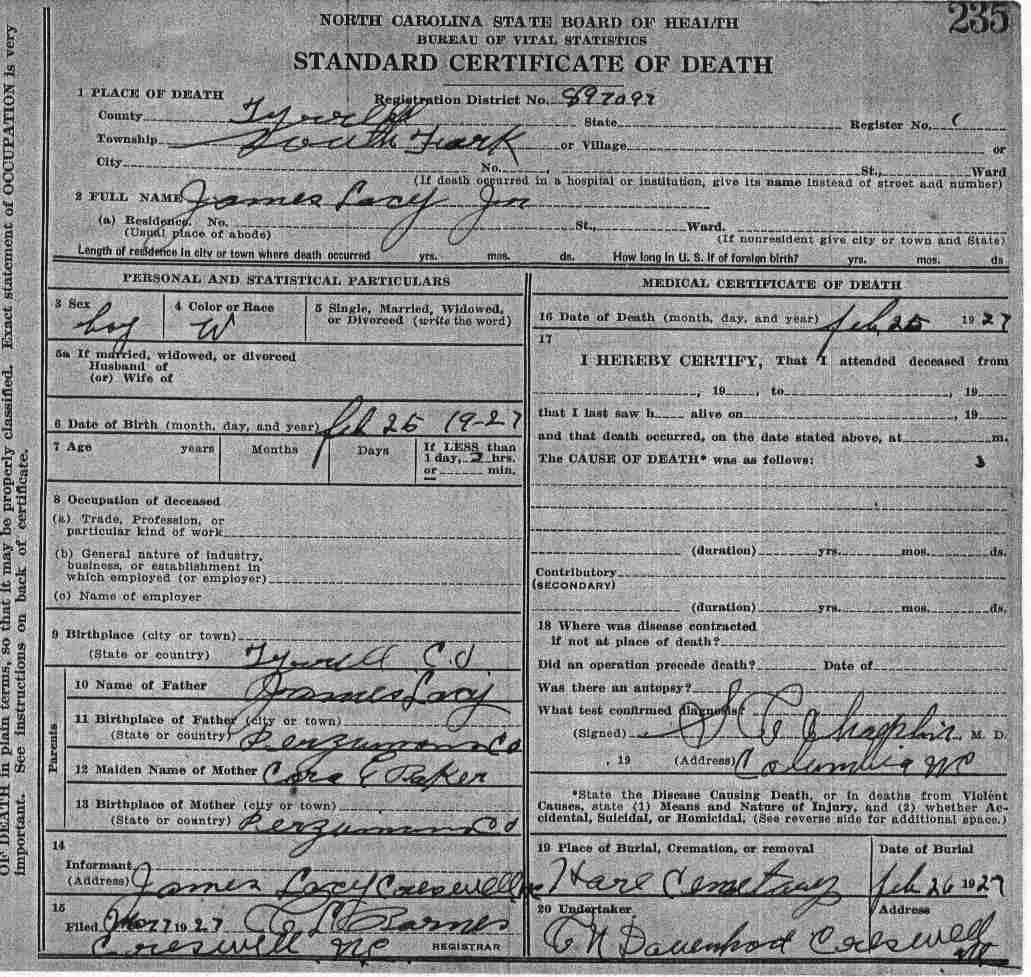 235
NORTH CAROLINA STATE BOARD OF HEALTH
BUREAU OF VITAL STATISTICS
STANDARD CERTIFICATE OF DEATH
1 PLACE OF DEATH Registration District No. 897097
County Tyrrell State Register No.
Township South Fork or Village or
City No. St., Ward
(If death occurred in a hospital or institution, give its name instead of street and number)
2 FULL NAME James Lacy Jnr
(a) Residence. No. St., Ward.
(Usual place of abode) (If nonresident give city or town and State)
Length of residence in city or town where death occurred yrs. mos. ds. How long in U. S. if of foreign birth? yrs. mos. ds
PERSONAL AND STATISTICAL PARTICULARS
3 Sex 4 Color or Race 5 Single, Married, Widowed,
or Divorced (write the word)
boy W
5a If married, widowed, or divorced
Husband of
(or) Wife of
6 Date of Birth (month, day, and year) feb 25 19-27
7 Age years Months Days If LESS than
1 day, 2 hrs.
or min.
8 Occupation of deceased
(a) Trade, Profession, or
particular kind of work
(b) General nature of industry,
business, or establishment in
which employed (or employer)
(c) Name of employer
9 Birthplace (city or town)
(State or country) Tyrrell Co
Parents
10 Name of Father James Lacy
11 Birthplace of Father (city or town)
(State or country) Perquimans Co
12 Maiden Name of Mother Cora E Baker
13 Birthplace of Mother (city or town)
(State or country) Perquimans Co
14
Informant
(Address) James Lacy Creswell NC
15
Filed Mar 7 1927 C L Barnes
Creswell NC REGISTRAR
MEDICAL CERTIFICATE OF DEATH
16 Date of Death (month, day, and year) feb 25 1927
17
I HEREBY CERTIFY, That I attended deceased from
, 19 , to , 19
that I last saw h alive on , 19
and that death occurred, on the date stated above, at m.
The CAUSE OF DEATH* was as follows:
(duration) yrs. mos. ds.
Contributory
(SECONDARY)
(duration) yrs. mos. ds.
18 Where was disease contracted
if not at place of death?
Did an operation precede death? Date of
Was there an autopsy?
What test confirmed diagnosis?
(Signed) Chaplin, M. D.
, 19 (Address) Columbia NC
*State the Disease Causing Death, or in deaths from Violent
Causes, state (1) Means and Nature of Injury, and (2) whether Ac-
cidental, Suicidal, or Homicidal. (See reverse side for additional space.)
19 Place of Burial, Cremation, or removal Date of Burial
Hare Cemetary feb 26 1927
20 Undertaker Address
Davenport Creswell NC
OF DEATH in plain terms, so that it may be properly classified. Exact statement of OCCUPATION is very
important. See instructions on back of certificate.